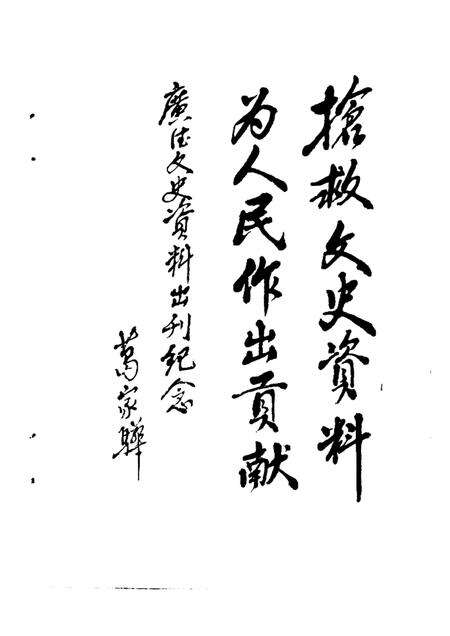 搶救文史資料
为人民作出貢献
廣德文史資料出刊紀念
萬家驊